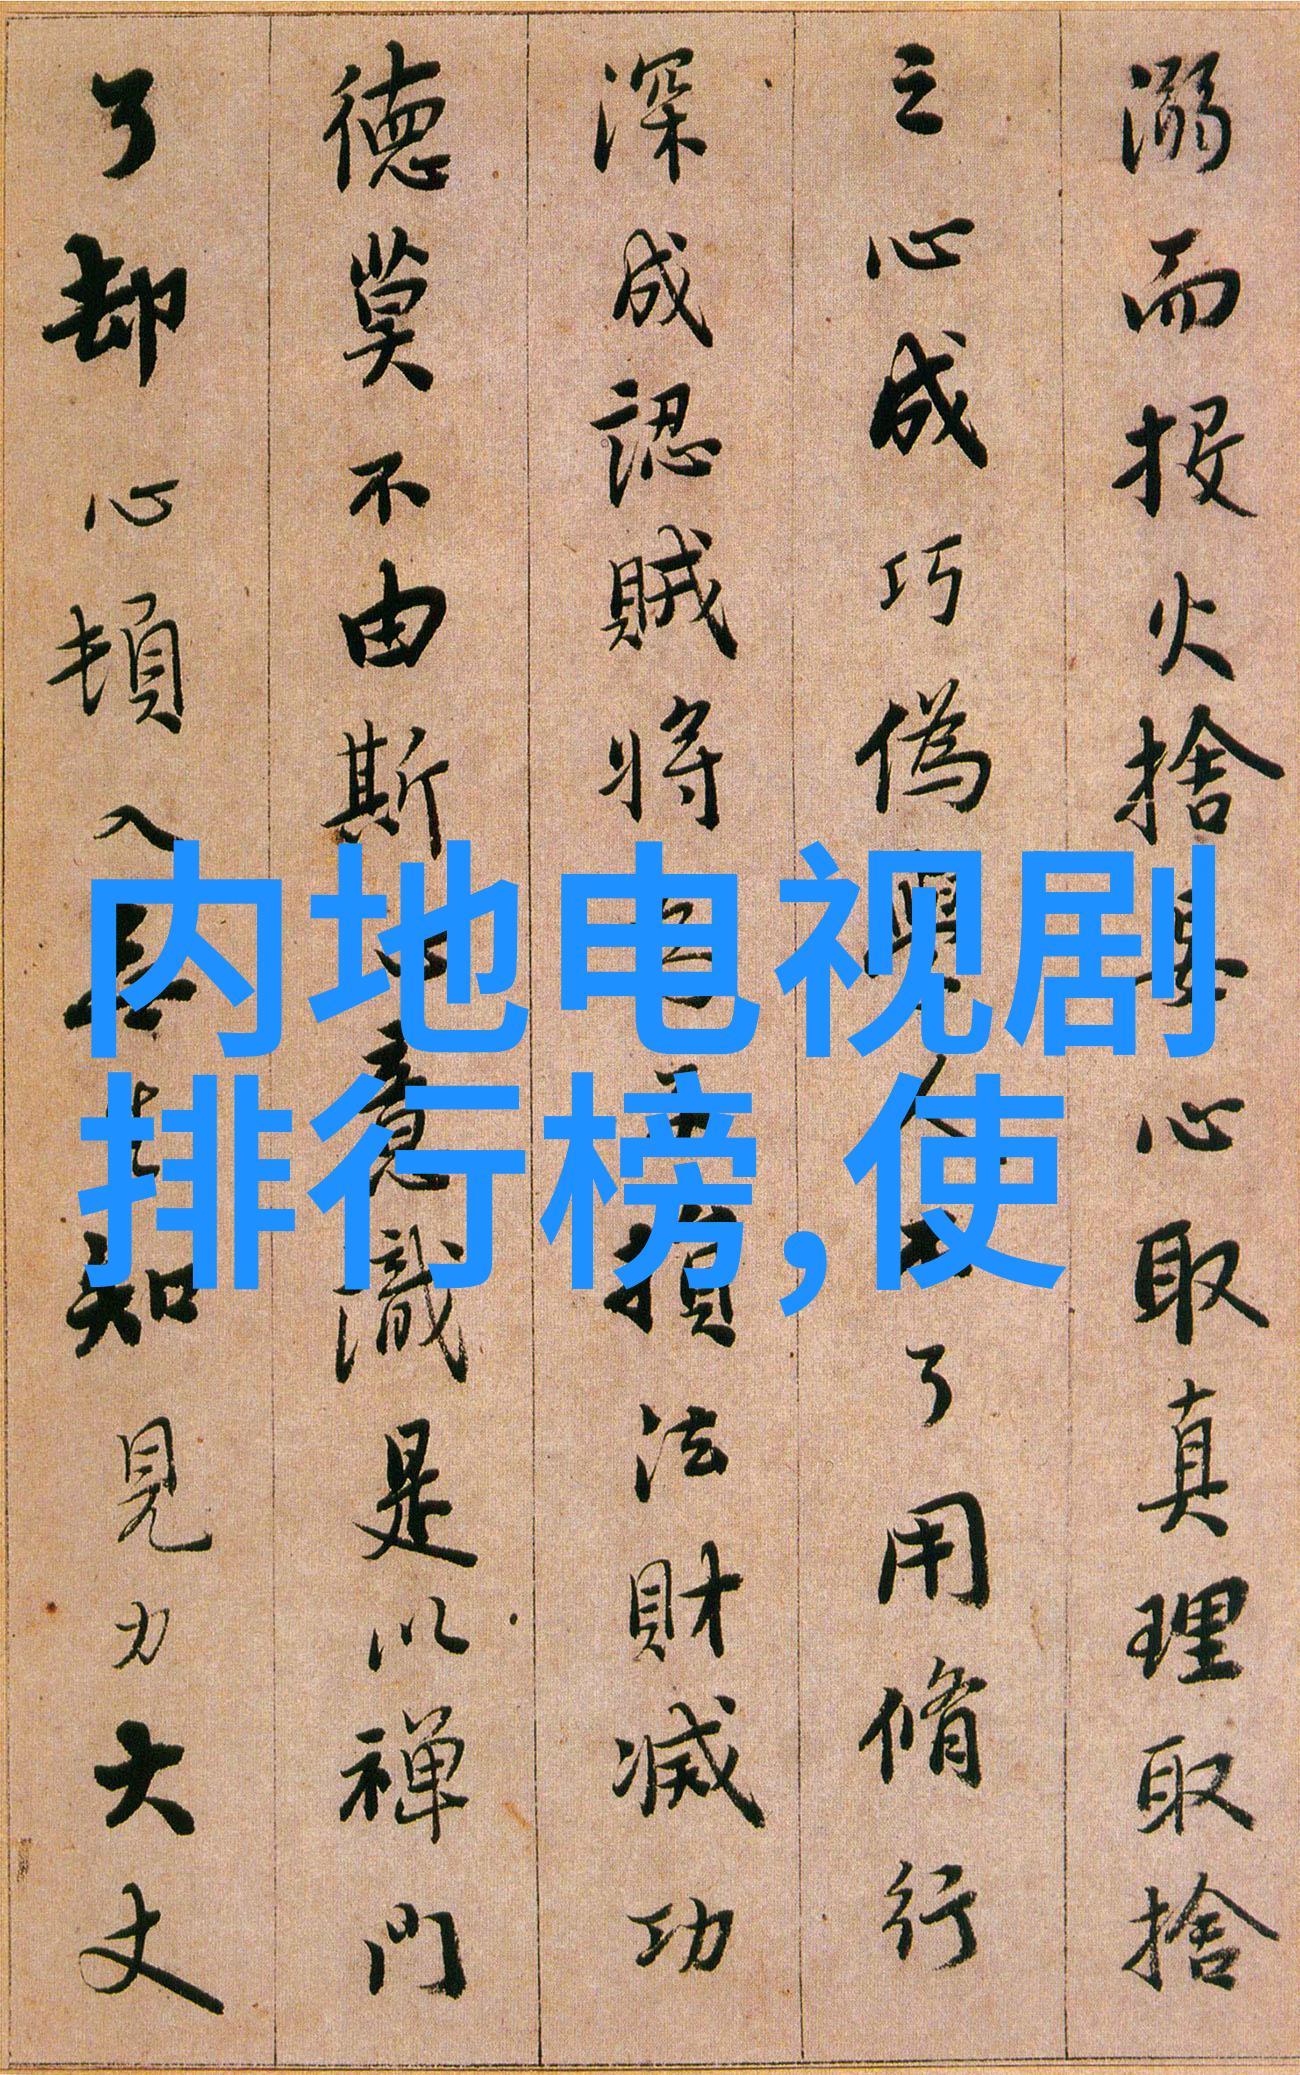 溺而投火捨妄心取真理取捨
之心成巧偽學人不了用脩行
深成認賊將為子損法財滅功
德莫不由斯心意識是以禅門
了却心頓入無生知見力大丈
内地电视剧
排行榜,使